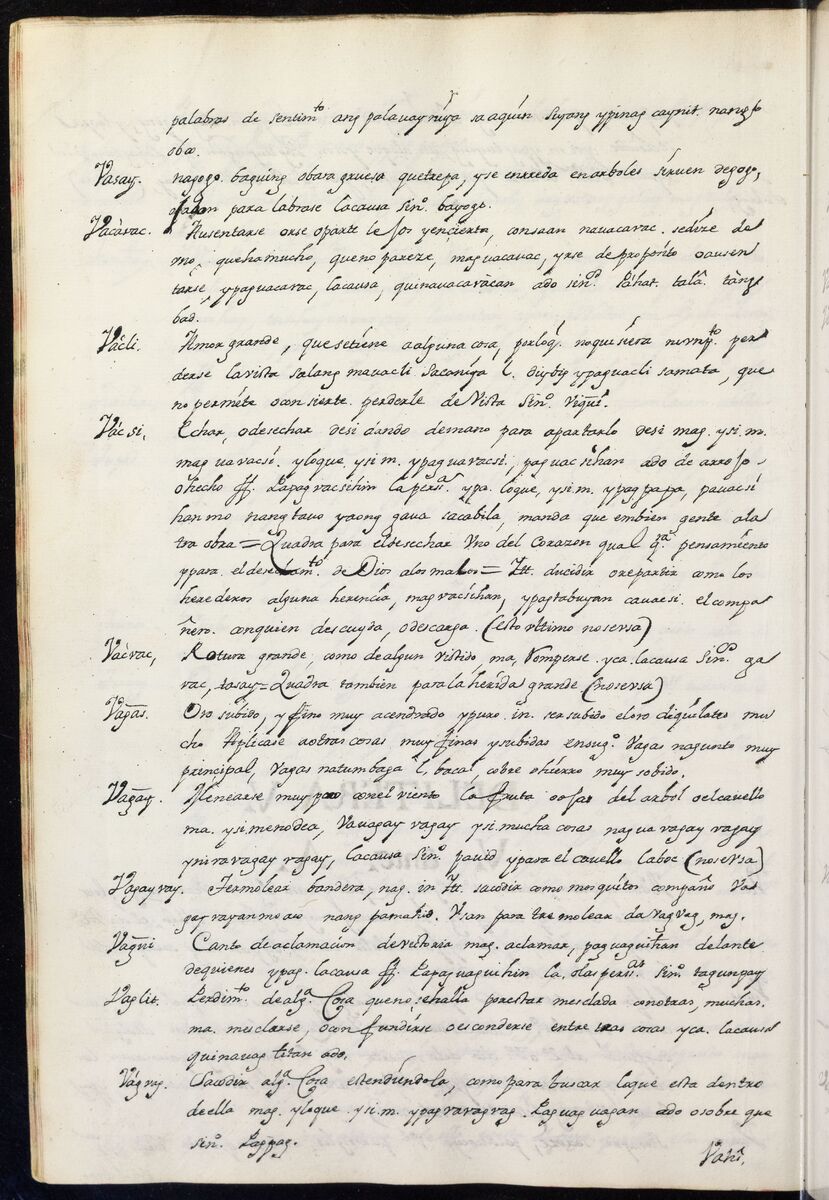 palabras de sentim.to ang palavay niya sa aquin siyang ypinag caynit. nang
oba.
Vasay. nagogo. baguing obara gruesa quetrepa, y se enrreda en arboles sirven de gogo,
para labrase la causa sin.o bayogo.
Vacàvac. Ausentarse or se oparte le jos y encierta, consaan navacavac. sedize de
mo, que ha mucho, que no pareze, mag vacavac, yrse de proposito o ausen
tarse, ypag vacavac, la causa, quinavacavàcan ado sin.o Láhat. talâ. tàng
bad.
Václi. Amor grande, que setiene a alguna cosa, por loq.
derse la vista salang mavacli sa caniya l. ypag vacli sa mata, que
no permite o consiente perderle de Vista Sin.o
Vácsi, Echar, o desechar de si dando de mano para apartarlo de si mag. y si. m.
mag va vacsi. y loque. y si. m. ypag va vacsi, pag vac sihan ado de arrojo
o hecho ff. Lapag vacsihin la pers.a ypa. loque, y si. m. ypag papa, pavacsi
han mo nang tavo yaong gava sa cabila, manda que embien gente a la
tra obra = Quadra para el desechar Uno del Corazon qual q.ra pensamiento
y para. el desecham.to de Dios a los malos = Itt. dividir o repartir como los
herederos alguna herencia, mag vacsihan, y cavacsi. el compa
ñero. con quien descuyda, o descarga. (esto ultimo no se usa)
Vacvac, Rotura grande, como de algun vistido, ma, Romperse. yca. la causa Sin.o ga
vac, tasay = Quadra tambien para la herida grande (no se usa)
Vag̃as. Oro subido, y fino muy acendrado y puro. in. sea subido el oro de quilates mu
cho Aplicase a otras cosas muy finas y subidas en su g.o Vagas na gunto muy
principal, Vagas na tumbaga l. bacal, cobre o hierro muy sobido.
Vag̃ay. Menearse muy poco con el viento la fruta o ojas del arbol o el cavello
ma. y si menodea, Vavagay vagay y si. mucha cosas nag va vagay vagay
y niva vagay vagay, la causa Sin.o pavid y para el cavello laboc (no se usa)
Vagayvay. Tremolear bandera, nag. in Itt. sacodir como mosquitos compaño Vag
gayvayan mo acò nang pamahid. Usan para tremolear da vagvag, mag.
Vag̃ui Canto de aclamacion de victoria mag. aclamar, pag vaguihan delante
de quienes ypag. la causa ff. Lapag vaguihin la, o las pers.as Sin.o tagumpay
Vaglit. Perdim.to de alg.a Cosa que no se halla por estar mesclada con otras, muchas.
ma. mesclarse, o confundirse o esconderse entre tras cosas yca. la causa
quinavag litan ado.
Vágvag. Sacodir alg.a Cosa estendiendola, como para buscar loque esta dentro
de ella mag. y loque. y si. m. ypag vavagvag. Lag vag vagan ado o sobre que
sin.o Lagpag.
Vahi.